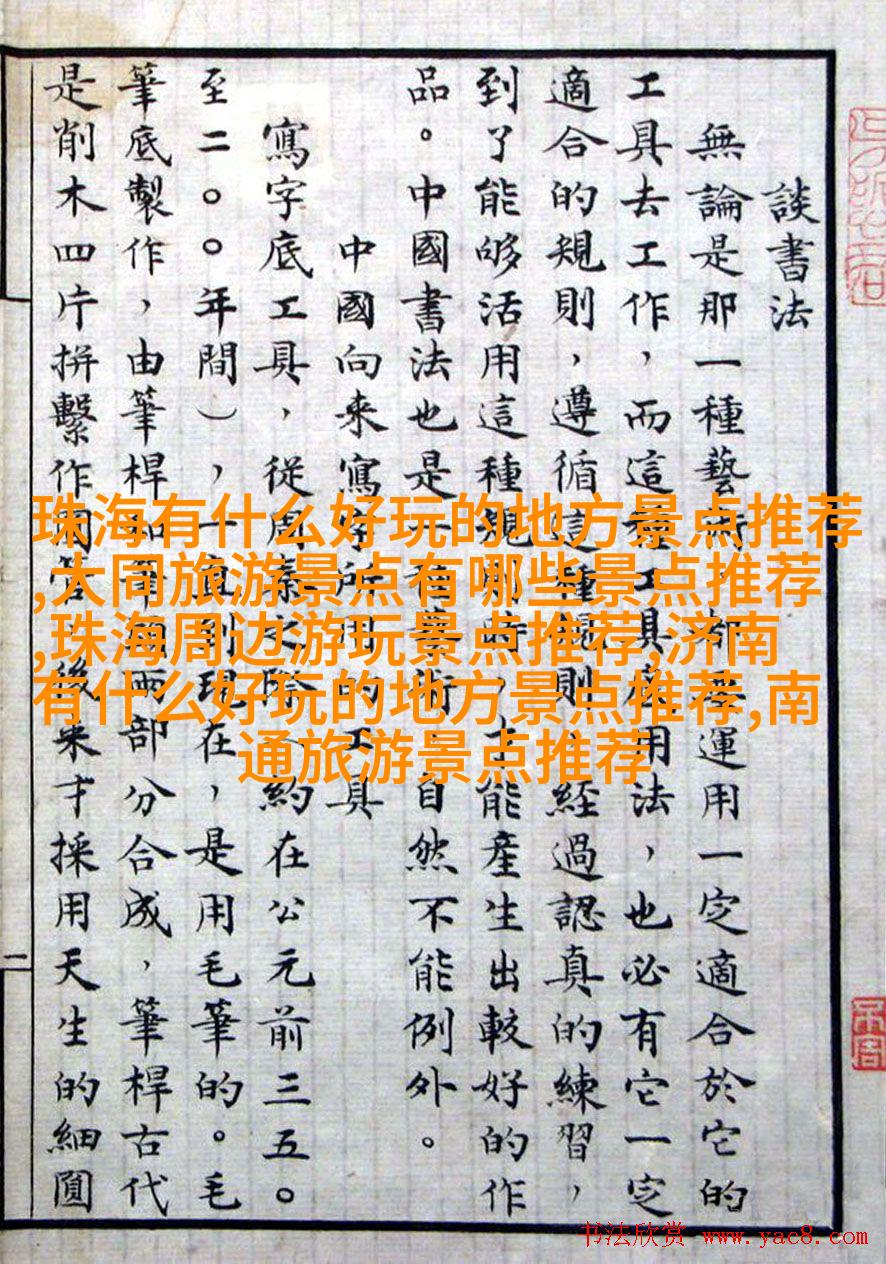 談書法
無論是那一種藝術，都要運用一定適合於它的
工具去工作，而這種工具底用法，也必有它一定
適合的規則，遵循這種規則，經過認真的練習，
到了能够活用這種規則時，才能產生出較好的作
品。中國書法也是一種藝術，自然不能例外。
中國向來寫字所用的工具
寫字底工具，從周秦之際（約在公元前三五〇
至二〇〇年間），一直到現在，是用毛筆的。毛
筆底製作，由筆桿和筆頭兩部分合成，筆桿古代
是削木四片拼繫作圓管，後來才採用天生的細圓
二
珠海有什么好玩的地方景点推荐
,大同旅游景点有哪些景点推荐
,珠海周边游玩景点推荐,济南
有什么好玩的地方景点推荐,南
通旅游景点推荐
书法欣赏 www.yac8.com